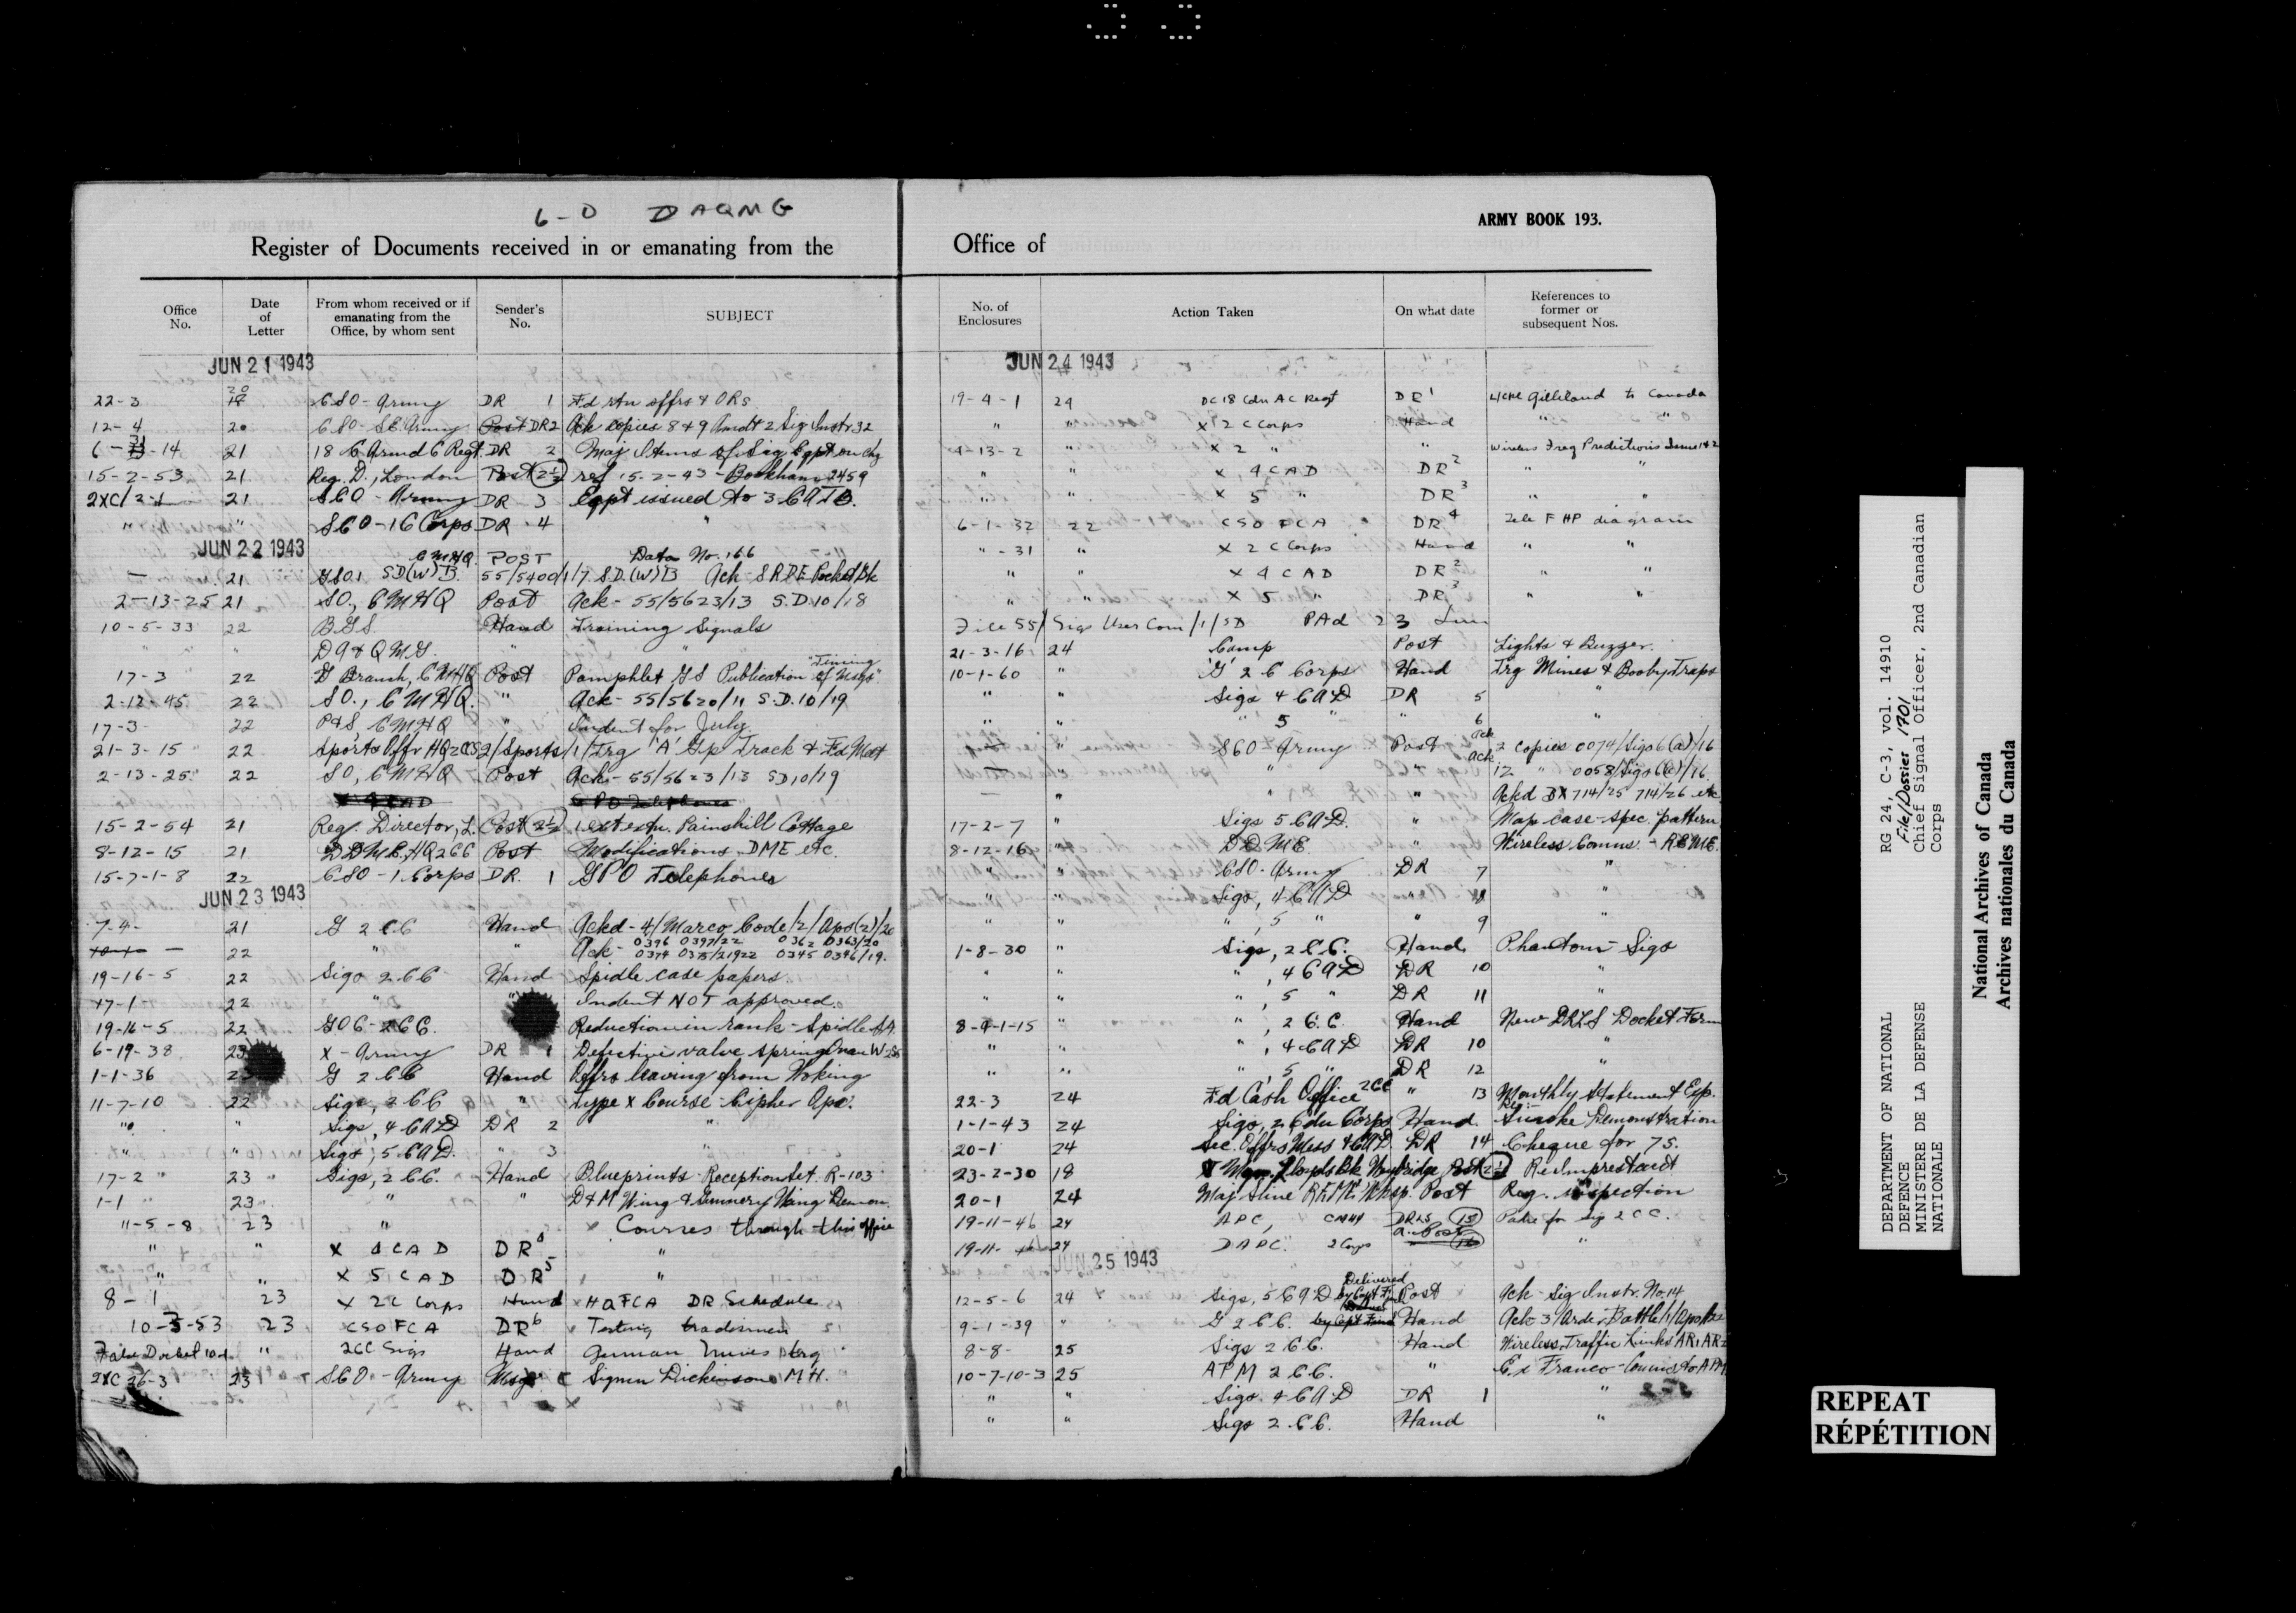 6-0 DAQMG
Register of Documents received in or emanating from the
Office No. Date of Letter From whom received or if emanating from the Office, by whom sent Sender's No. SUBJECT
JUN 21 1943
22-3 20 CSO-Army DR 1 Fd rtn offrs & ORs
12-4 20 CSO-SE Army Post DR2 Ack copies 8 & 9 Amdt 2 Sig Instr 32
6-31-14 21 18 C Armd C Regt. DR 2 Maj Items of Sig Eqpt on Chg
15-2-53 21 Reg. D., London Post 2½ ref 15-2-43 - Bookham 2459
2XC/2-1 21 SCO-Army DR 3 Eqpt issued to 3 CATB.
" " SCO-1 C Corps DR 4 "
JUN 22 1943
CMHQ. POST Data No. 166
— 21 GSO1 SD(W)B. 55/5400/1/7 S.D.(W)B Ack-SRDE Pocket Bk
2-13-25 21 SO, CMHQ Post Ack-55/5623/13 S.D.10/18
10-5-33 22 BGS. Hand Training Signals
" " DA&QMG. "
17-3 22 G Branch, CMHQ Post Pamphlet GS Publication "Timing of Msgs"
2-12-45 22 SO., CMHQ. " Ack-55/5620/11 S.D.10/19
17-3 22 P&S CMHQ " Indent for July
21-3-15 22 Sports Offr HQ2CC 2/Sports/1/Trg 'A' Gp Track & Fd Meet
2-13-25 22 SO, CMHQ Post Ack-55/5623/13 SD10/19
X 4 CAD GPO Telephones
15-2-54 21 Reg. Director, L. Post 2½ 1 ext extn. Painshill Cottage
8-12-15 21 DDME, HQ2CC Post Modifications DME etc.
15-7-1-8 22 CSO-1 Corps DR. 1 GPO Telephones
JUN 23 1943
7-4- 21 G 2CC Hand Ackd-4/Marco Code/2/Aps(2)/20
— 22 " " Ack-
19-16-5 22 Sigs 2CC Hand Spidle case papers.
17-1- 22 " " Indent NOT approved.
19-16-5 22 GOC-2CC. Reduction in rank-Spidle
6-19-38 23 X-Army DR 1 Defective valve spring
1-1-36 23 G 2CC Hand Offrs leaving from Woking
11-7-10 22 Sigs, 2CC " Type X Course-Cipher Ops.
" " Sigs, 4 CAD DR 2 "
" " Sigs, 5 CAD. " 3 "
17-2 23 Sigs, 2CC. Hand Blueprints-Reception Set. R-103
1-1 23 " " D&M Wing & Gunnery Wing Demon.
11-5-8 23 " Courses through this office
" " X 4 CAD DR4 "
" " X 5 CAD DR5 "
8-1 23 X 2C Corps Hand HQFCA DR Schedule
10-5-53 23 CSO FCA DR6 Testing tradesmen
False Docket " 2CC Sigs Hand German Mines trg
2XC 26-3 23 SCO-Army Msgr Signmn Dickinson MH.
ARMY BOOK 193.
Office of
No. of Enclosures Action Taken On what date References to former or subsequent Nos.
JUN 24 1943
19-4-1 24 OC 18 Cdn AC Regt DR1 Gilliland to Canada
" " X 2C Corps Hand " "
4-13-2 " X 2 " " Wireless Freq Predictions Issue 1&2
" " X 4 CAD DR2 " "
" " X 5 " DR3 " "
6-1-32 22 CSO FCA DR4 Tele F HP diagram
"-31 " X 2 C Corps Hand " "
" " X 4 CAD DR2 " "
" " X 5 " DR3 " "
File 55/Sigs User Com/1/SD PAd 23 Jun
21-3-16 24 Camp Post Lights & Buzzer.
10-1-60 " 'G' 2 C Corps Hand Trg Mines & Booby Traps
" " Sigs 4 CAD DR 5 "
" " " 5 " " 6 "
— " SCO Army Post Ack 2 copies 0074/Sigs 6(a)/16
— " " " Ack 12 " 0058/Sigs 6(c)/16.
— " " " Ackd DX714/25 714/26 etc
17-2-7 " Sigs 5 CAD. " Map case-spec. pattern
8-12-16 " DDME " Wireless Comns.-REME.
" " CSO-Army DR 7 "
" " Sigs, 4 CAD " 8 "
" " ", 5 " " 9 "
1-8-30 " Sigs, 2CC. Hand Phantom Sigs
" " ", 4 CAD DR 10 "
" " ", 5 " DR 11 "
8-9-1-15 " ", 2CC. Hand New DRLS Docket Form
" " ", 4 CAD DR 10 "
" " ", 5 " DR 12 "
22-3 24 Fd Cash Office 2CC " 13 Monthly Statement Exp.
1-1-43 24 Sigs, 2 Cdn Corps Hand. Re:- Smoke Demonstration
20-1 24 Sec. Offrs Mess 4CAD. DR 14 Cheque for 75.
23-2-30 18 Lloyds Bk Weybridge Post 2½ Re Imprest acct
20-1 24 Maj Sline REME Wksp. Post Reg. inspection
19-11-46 24 APC, CMHQ DRLS 15 Patie for Sig 2CC.
19-11- 24 DAPC. 2 Corps 16 "
JUN 25 1943
12-5-6 24 Sigs, 5 CAD Delivered by Capt Post Ack-Sig Instr. No. 14
9-1-39 " G 2CC. by Capt Hand Ack-3/Order Battle/1/Aps
8-8- 25 Sigs 2CC. Hand Wireless Traffic Links AR1 AR2
10-7-10-3 25 APM 2CC. " C. & Franco-Council to APM
" " Sigs. 4 CAD DR 1 "
" " Sigs 2.CC. Hand "
DEPARTMENT OF NATIONAL DEFENCE
MINISTERE DE LA DEFENSE NATIONALE
RG 24, C-3, vol. 14910
File/Dossier 1701
Chief Signal Officer, 2nd Canadian Corps
National Archives of Canada
Archives nationales du Canada
REPEAT
RÉPÉTITION